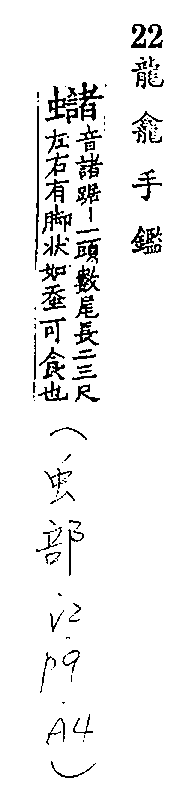 22龍龕手鑑
䗯音諸踞―一頭數尾長二三尺
左右有脚状如蚕可食也
(虫部.V2.P9.A4)